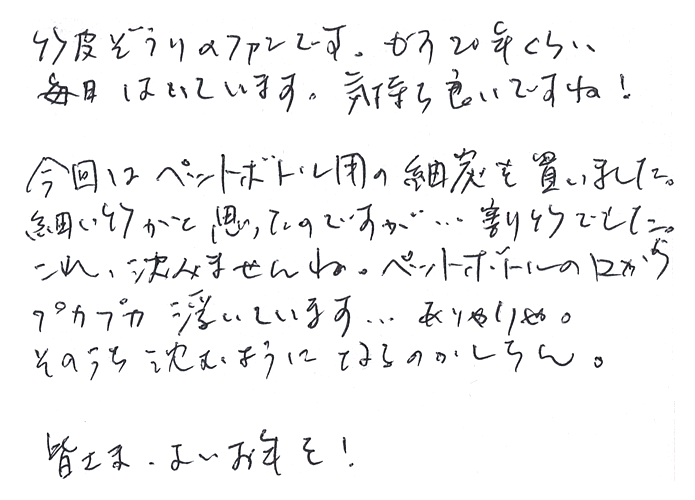 竹皮ぞうりのファンです。もう20年くらい
毎日はいています。気持ち良いですね!
今回はペットボトル用の細炭を買いました。
細い竹かと思ったのですが…割り竹でした。
これ、沈みませんね。ペットボトルの口から
プカプカ浮いています…ありゃりゃ。
そのうち沈むようになるのかしらん。
皆さま、よいお年を!